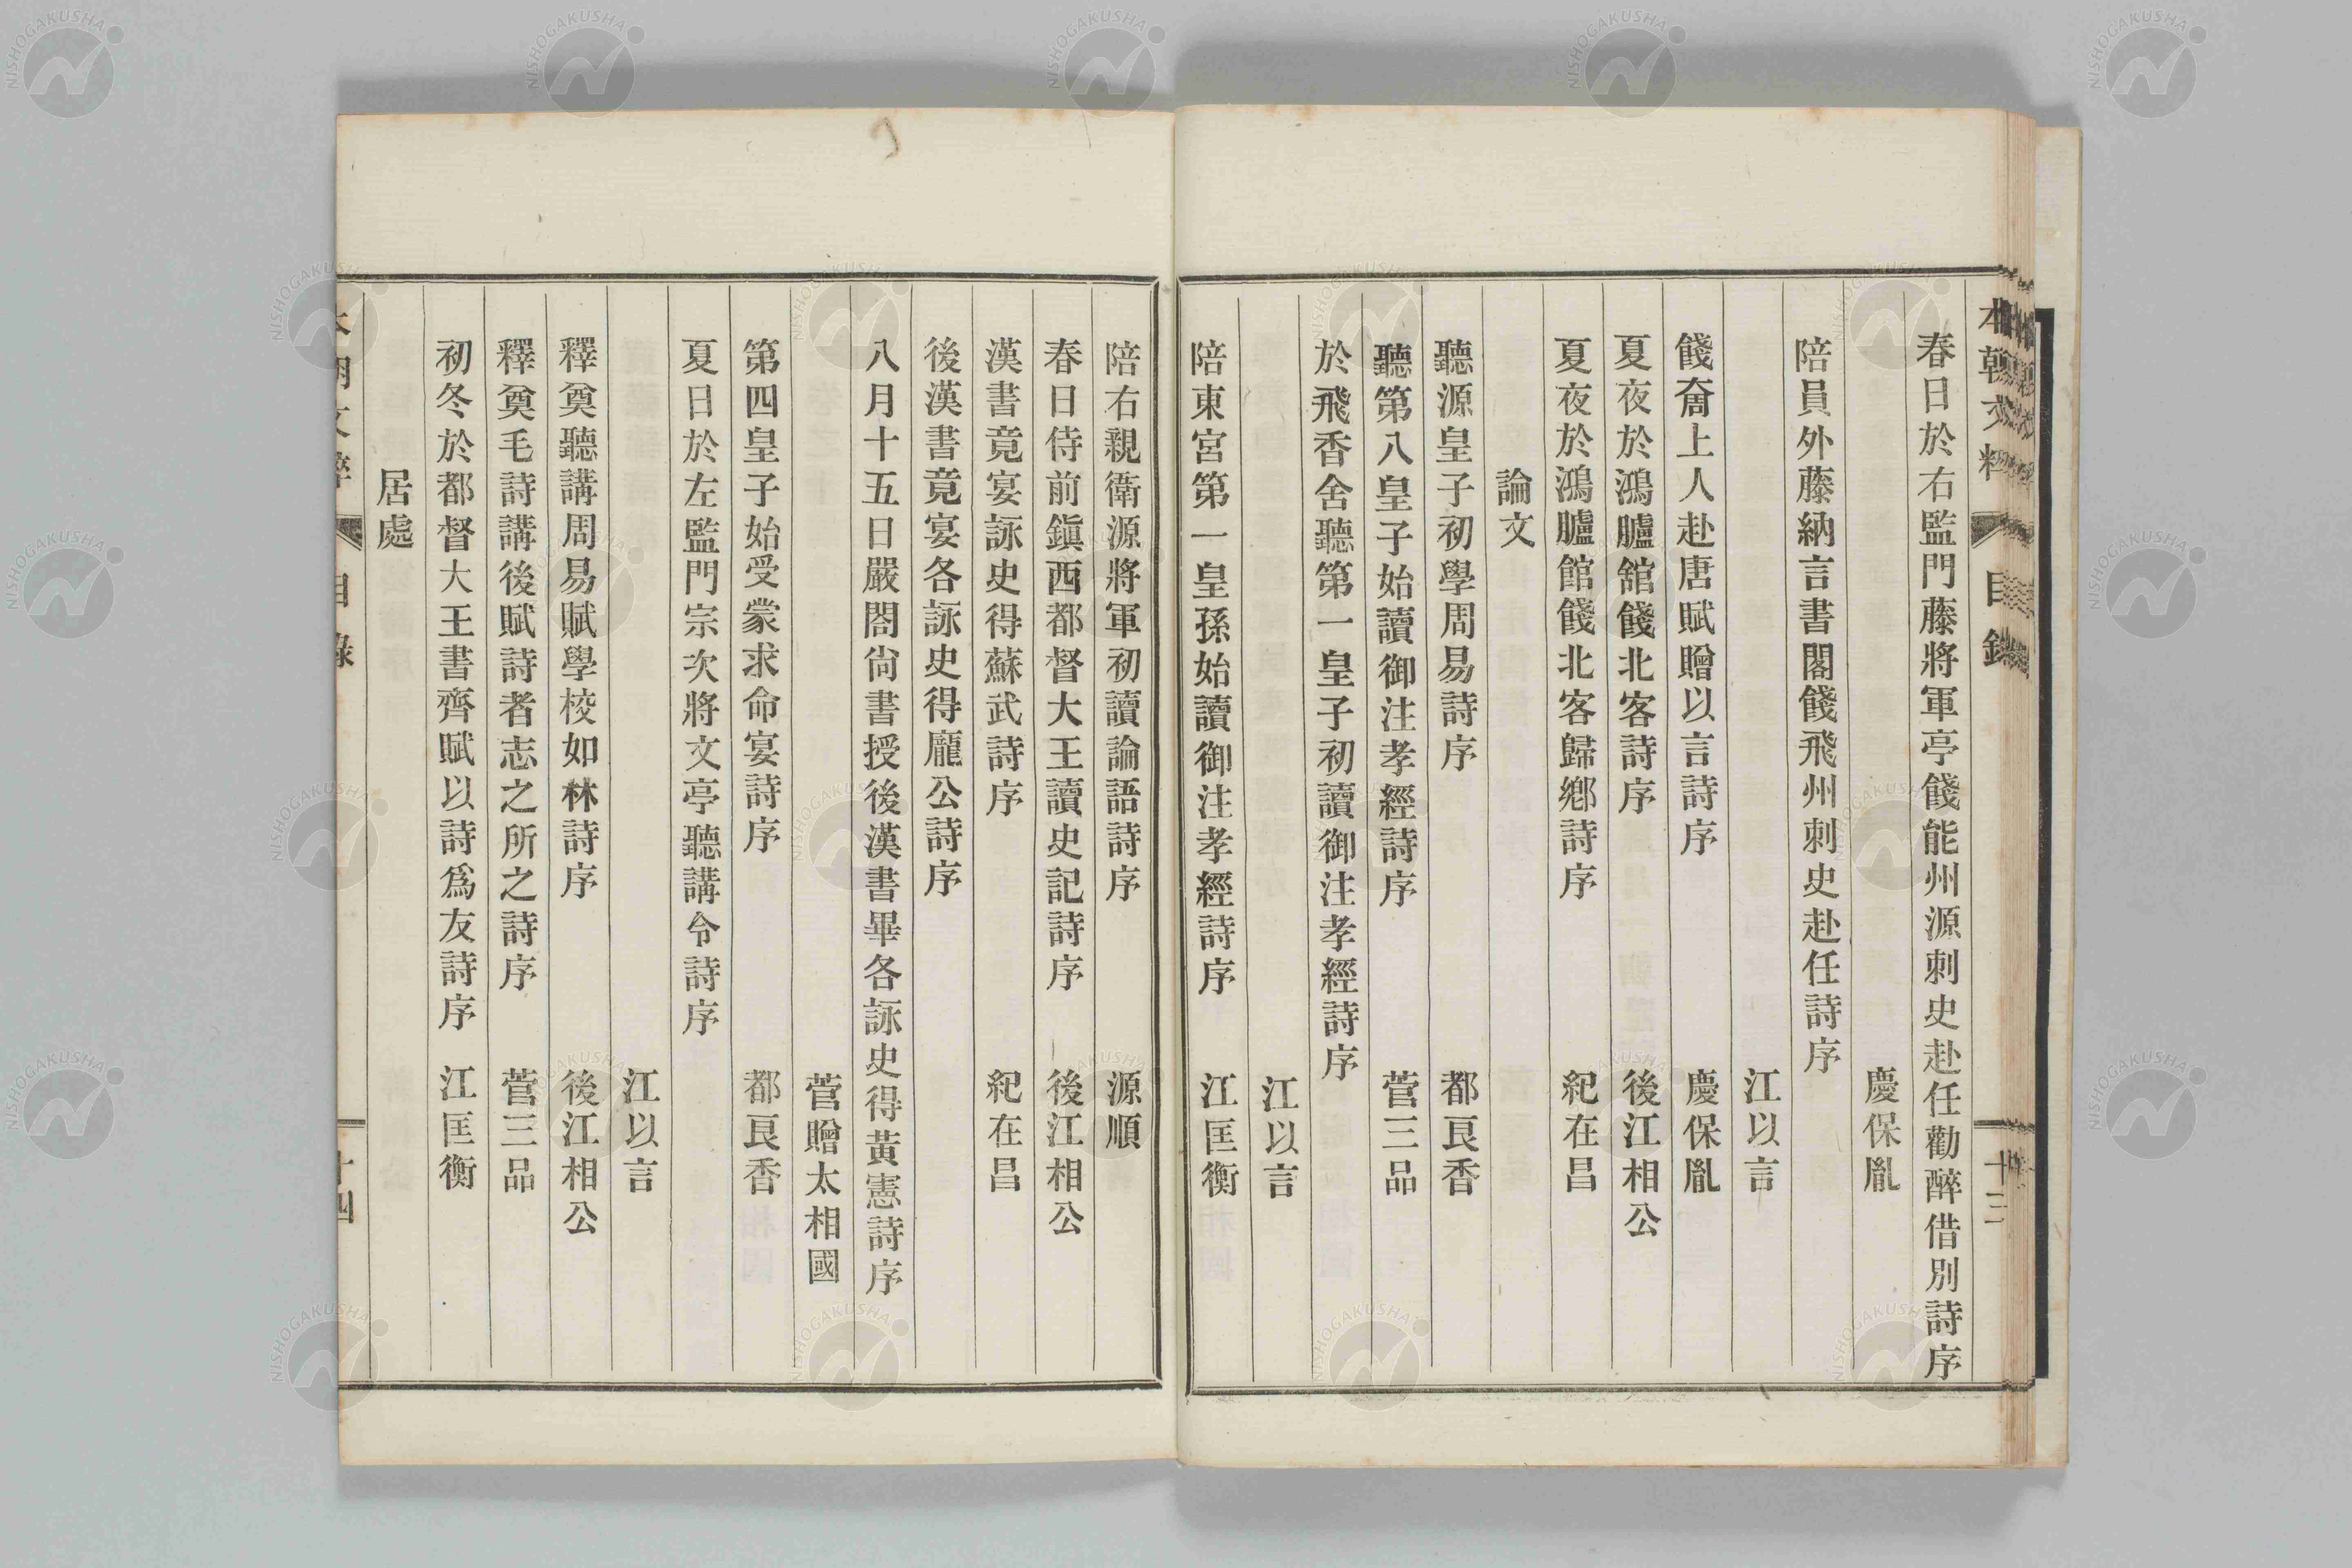 本朝文粹 目錄 十三
春日於右監門藤將軍亭餞能州源刺史赴任勸醉借別詩序
慶保胤
陪員外藤納言書閣餞飛州刺史赴任詩序
江以言
餞奝上人赴唐賦贈以言詩序 慶保胤
夏夜於鴻臚舘餞北客詩序 後江相公
夏夜於鴻臚館餞北客歸鄉詩序 紀在昌
論文
聽源皇子初學周易詩序 都良香
聽第八皇子始讀御注孝經詩序 菅三品
於飛香舍聽第一皇子初讀御注孝經詩序
江以言
陪東宮第一皇孫始讀御注孝經詩序 江匡衡
陪右親衛源將軍初讀論語詩序 源順
春日侍前鎭西都督大王讀史記詩序 後江相公
漢書竟宴詠史得蘇武詩序 紀在昌
後漢書竟宴各詠史得龐公詩序
八月十五日嚴閤尙書授後漢書畢各詠史得黃憲詩序
菅贈太相國
第四皇子始受蒙求命宴詩序 都良香
夏日於左監門宗次將文亭聽講令詩序
江以言
釋奠聽講周易賦學校如林詩序 後江相公
釋奠毛詩講後賦詩者志之所之詩序 菅三品
初冬於都督大王書齊賦以詩爲友詩序 江匡衡
居處
本朝文粹 目錄 十四
NISHOGAKUSHA